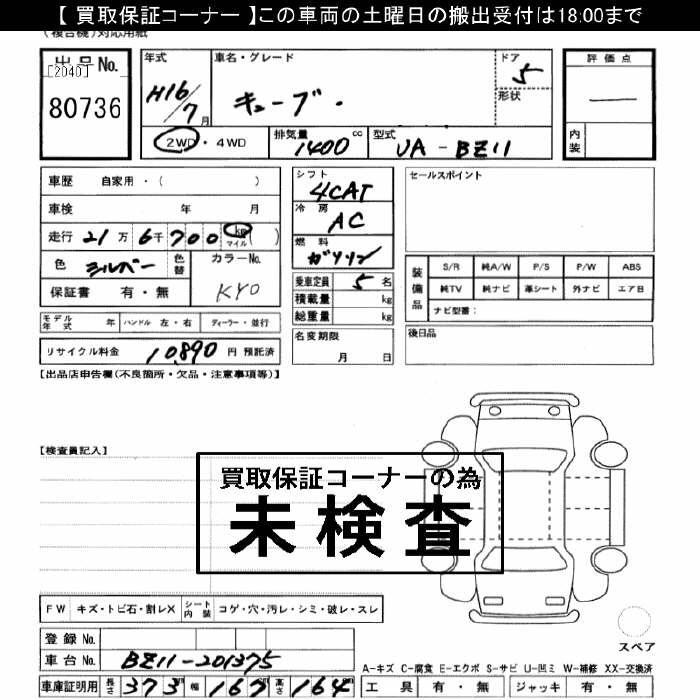 【 買取保証コーナー 】この車両の土曜日の搬出受付は18:00まで
(複合機)対応用紙
出品No.
[2040]
80736
年式
H16/7月
車名・グレード
キューブ.
ドア
5
形状
評価点
—
内装
2WD・4WD
排気量
1400cc
型式
UA-BZ11
車歴 自家用・( )
車検 年 月
走行 21万6千700 km マイル ( )
色 シルバー
色替
カラーNo.
KY0
保証書 有・無
シフト
4CAT
冷房
AC
燃料
ガソリン
乗車定員 5名
積載量 kg
総重量 kg
セールスポイント
装備品
S/R 純A/W P/S P/W ABS
純TV 純ナビ 革シート 外ナビ エア日
ナビ型番:
モデル年式 年 ハンドル 左・右 ディーラー・並行
リサイクル料金 10,890 円 預託済
名変期限
月 日
後日品
【出品店申告欄(不良箇所・欠品・注意事項等)】
【検査員記入】
買取保証コーナーの為
未検査
FW キズ・トビ石・割レX シート内装 コゲ・穴・汚レ・シミ・破レ・スレ
登録No.
車台No. BZ11-201375
車庫証明用 長さ 373cm 幅 167cm 高さ 164cm
スペア
A-キズ C-腐食 E-エクボ S-サビ U-凹ミ W-補修 XX-交換済
工具 有・無 ジャッキ 有・無